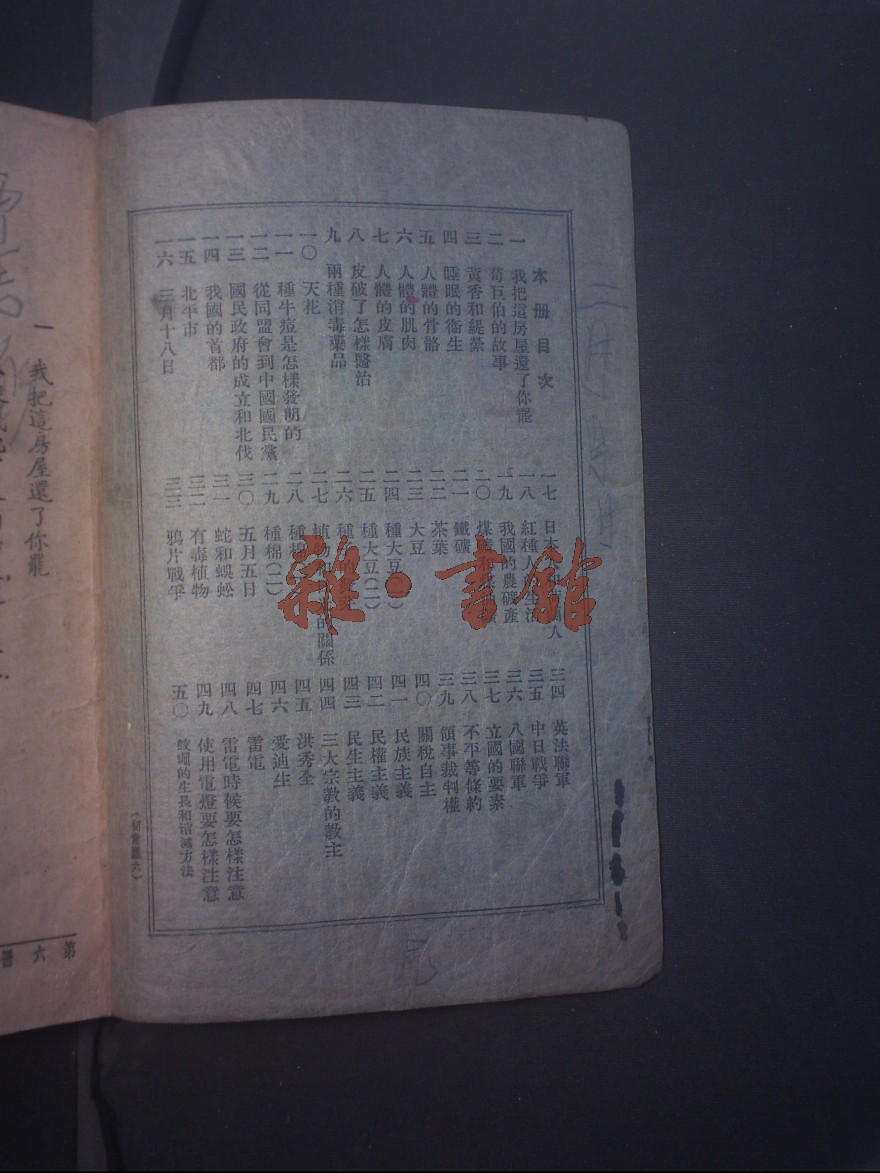 本册目次
一 我把這房屋還了你罷
二 荀巨伯的故事
三 黃香和緹縈
四 睡眠的衛生
五 人體的骨骼
六 人體的肌肉
七 人體的皮膚
八 皮破了怎樣醫治
九 兩種消毒藥品
一〇 天花
一一 種牛痘是怎樣發明的
一二 從同盟會到中國國民黨
一三 國民政府的成立和北伐
一四 我國的首都
一五 北平市
一六 三月十八日
一七 日本人
一八 紅種人 生活
一九 我國的農礦產
二〇 煤
二一 鐵礦
二二 茶葉
二三 大豆
二四 種大豆
二五 種大豆(二)
二六 種
二七 植物 的關係
二八 種棉
二九 種棉(二)
三〇 五月五日
三一 蛇和蜈蚣
三二 有毒植物
三三 鴉片戰爭
三四 英法聯軍
三五 中日戰爭
三六 八國聯軍
三七 立國的要素
三八 不平等條約
三九 領事裁判權
四〇 關稅自主
四一 民族主義
四二 民權主義
四三 民生主義
四四 三大宗教的教主
四五 洪秀全
四六 愛迪生
四七 雷電
四八 雷電時候要怎樣注意
四九 使用電燈要怎樣注意
五〇 蚊蠅的生長和消滅方法
(初常識六)
一 我把這房屋還了你罷
第六册
雜·書館